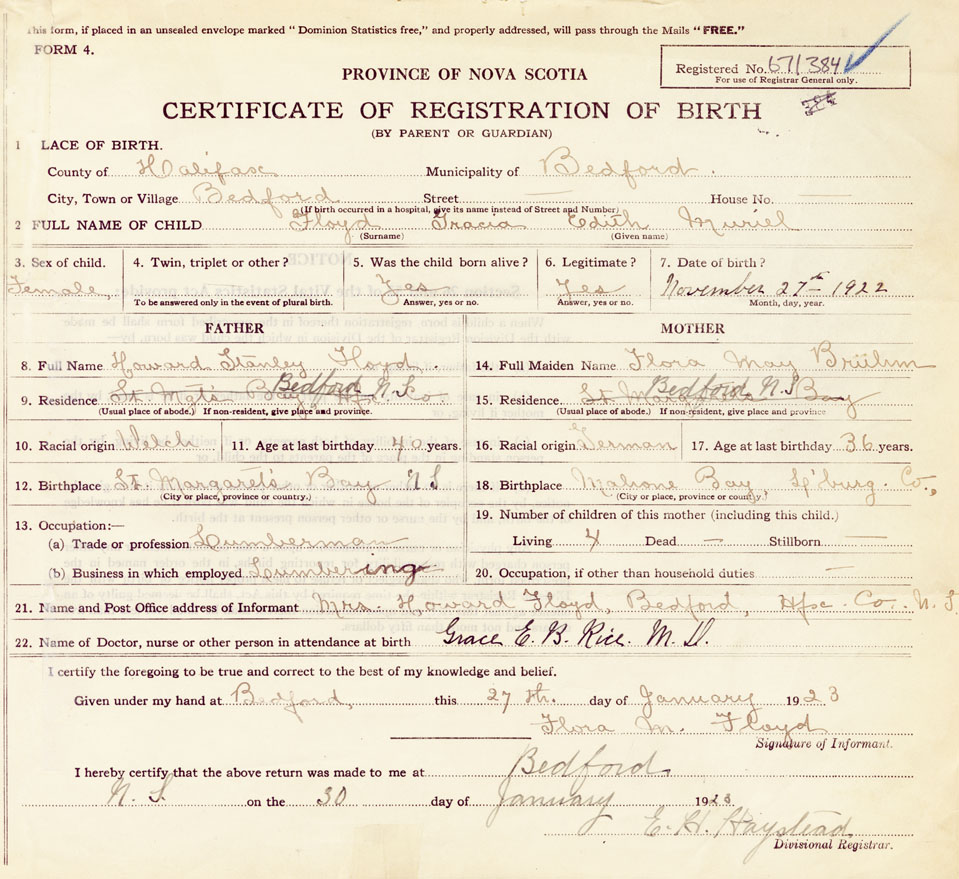 This form, if placed in an unsealed envelope marked "Dominion Statistics free," and properly addressed, will pass through the Mails "FREE."
FORM 4.
Registered No. 671384
For use of Registrar General only.
PROVINCE OF NOVA SCOTIA
CERTIFICATE OF REGISTRATION OF BIRTH
(BY PARENT OR GUARDIAN)
1 LACE OF BIRTH.
County of Halifax Municipality of Bedford
City, Town or Village Bedford Street — House No. —
(If birth occurred in a hospital, give its name instead of Street and Number)
2 FULL NAME OF CHILD Floyd Gracia Edith Muriel
(Surname) (Given name)
3. Sex of child. 4. Twin, triplet or other? 5. Was the child born alive? 6. Legitimate? 7. Date of birth?
Female, Yes Yes November 27th 1922
To be answered only in the event of plural birth. Answer, yes or no. Answer, yes or no. Month, day, year.
FATHER MOTHER
8. Full Name Howard Stanley Floyd. 14. Full Maiden Name Flora May Brüihm
9. Residence St. Mgt's Bay Co. Bedford N.S. 15. Residence St Bay Bedford N.S
(Usual place of abode.) If non-resident, give place and province. (Usual place of abode.) If non-resident, give place and province
10. Racial origin Welch 11. Age at last birthday 40 years. 16. Racial origin German 17. Age at last birthday 36 years.
12. Birthplace St. Margaret's Bay N S 18. Birthplace Mahone Bay L'burg. Co.,
(City or place, province or country.) (City or place, province or country)
13. Occupation:— 19. Number of children of this mother (including this child.)
(a) Trade or profession Lumberman Living 4 Dead — Stillborn —
(b) Business in which employed Lumbering 20. Occupation, if other than household duties —
21. Name and Post Office address of Informant Mrs. Howard Floyd, Bedford, Hfx. Co. N.S.
22. Name of Doctor, nurse or other person in attendance at birth Grace E. B. Rice M.D.
I certify the foregoing to be true and correct to the best of my knowledge and belief.
Given under my hand at Bedford, this 27th. day of January 1923
Flora M. Floyd
Signature of Informant.
I hereby certify that the above return was made to me at Bedford
N.S. on the 30 day of January 1923
E. H. Haystead
Divisional Registrar.